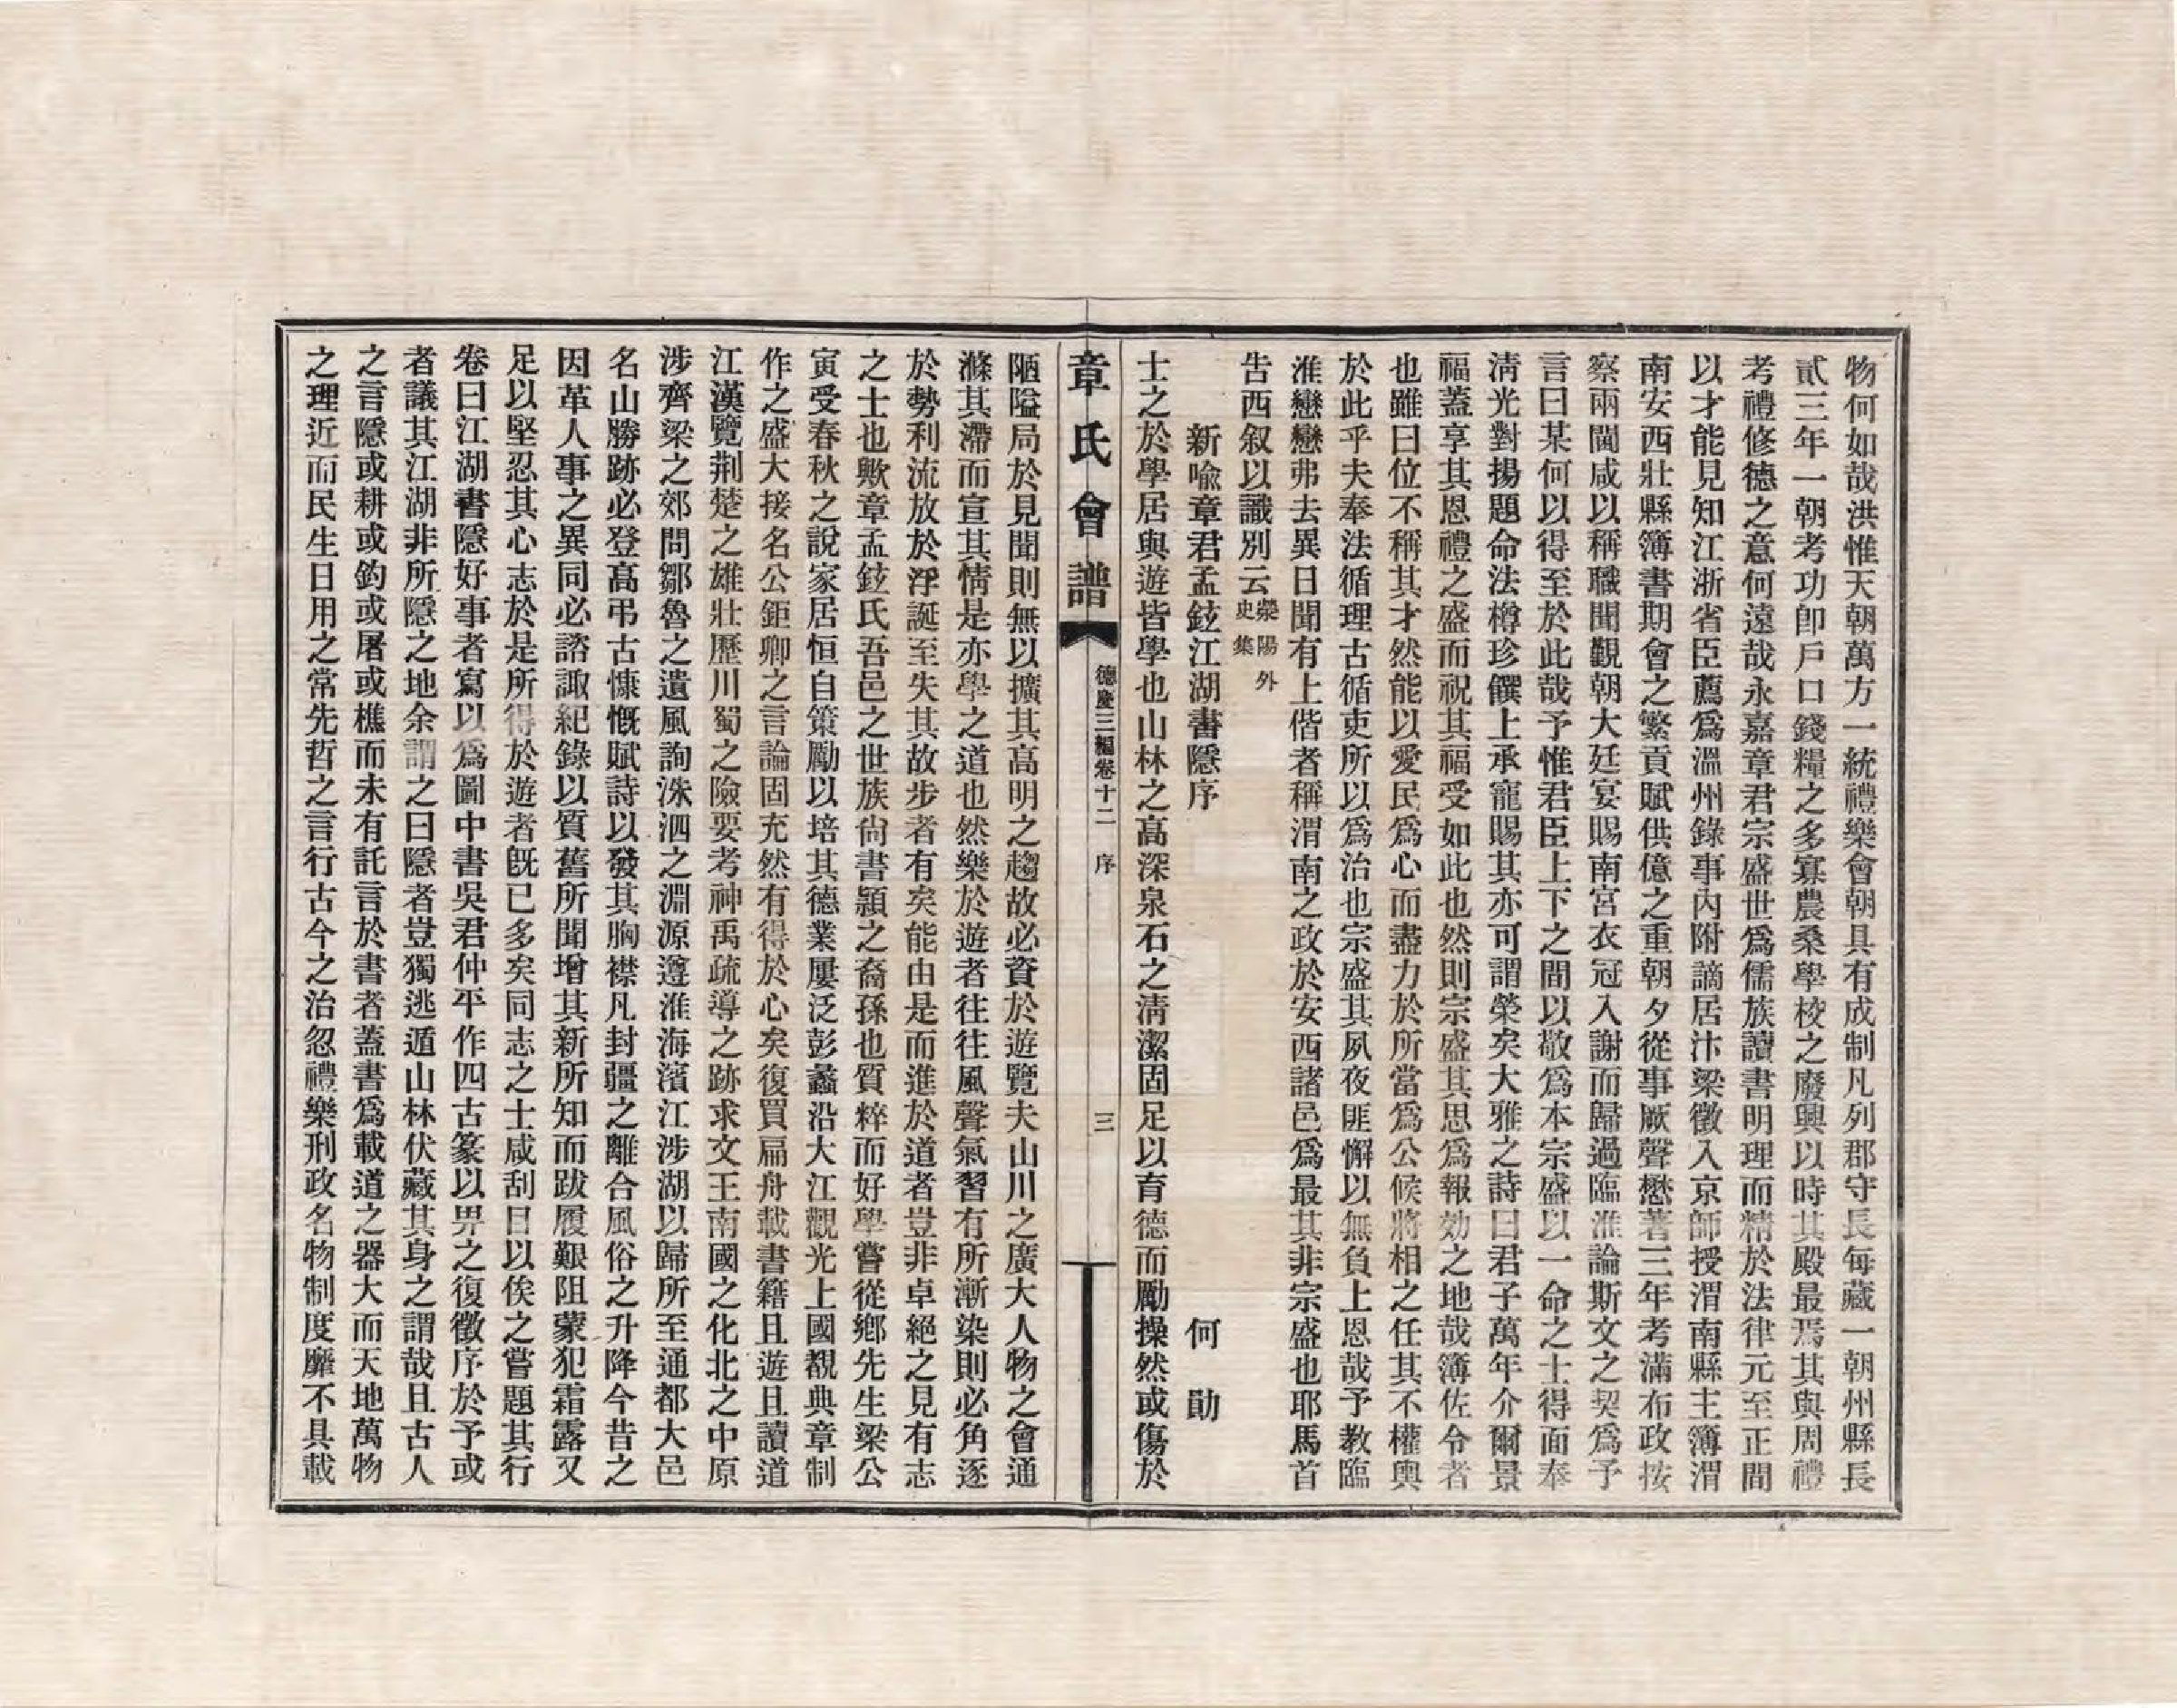 物何如哉洪惟天朝萬方一統禮樂會朝具有成制凡列郡守長每藏一朝州縣長
貳三年一朝考功卽戶口錢糧之多寡農桑學校之廢興以時其殿最焉其與周禮
考禮修德之意何遠哉永嘉章君宗盛世爲儒族讀書明理而精於法律元至正間
以才能見知江浙省臣薦爲溫州錄事內附謫居汴梁徵入京師授渭南縣主簿渭
南安西壯縣簿書期會之繁貢賦供億之重朝夕從事厥聲懋著三年考滿布政按
察兩閫咸以稱職聞觀朝大廷宴賜南宮衣冠入謝而歸過臨淮論斯文之契爲予
言曰某何以得至於此哉予惟君臣上下之間以敬爲本宗盛以一命之士得面奉
淸光對揚題命法樽珍饌上承寵賜其亦可謂榮矣大雅之詩曰君子萬年介爾景
福蓋享其恩禮之盛而祝其福受如此也然則宗盛其思爲報効之地哉簿佐令者
也雖曰位不稱其才然能以愛民爲心而盡力於所當爲公候將相之任其不權輿
於此乎夫奉法循理古循吏所以爲治也宗盛其夙夜匪懈以無負上恩哉予教臨
淮戀戀弗去異日聞有上偕者稱渭南之政於安西諸邑爲最其非宗盛也耶馬首
告西叙以識別云滎陽外史集
新喩章君孟鉉江湖書隱序
何勛
士之於學居與遊皆學也山林之高深泉石之淸潔固足以育德而勵操然或傷於
章氏會譜
德慶三編卷十二 序
三
陋隘局於見聞則無以擴其高明之趨故必資於遊覽夫山川之廣大人物之會通
滌其滯而宣其情是亦學之道也然樂於遊者往往風聲氣習有所漸染則必角逐
於勢利流放於浮誕至失其故步者有矣能由是而進於道者豈非卓絕之見有志
之士也歟章孟鉉氏吾邑之世族尙書潁之裔孫也質粹而好學嘗從鄕先生梁公
寅受春秋之說家居恒自策勵以培其德業屢泛彭蠡沿大江觀光上國覩典章制
作之盛大接名公鉅卿之言論固充然有得於心矣復買扁舟載書籍且遊且讀道
江漢覽荆楚之雄壯歷川蜀之險要考神禹疏導之跡求文王南國之化北之中原
涉齊梁之郊問鄒魯之遺風詢洙泗之淵源遵淮海濱江涉湖以歸所至通都大邑
名山勝跡必登高弔古慷慨賦詩以發其胸襟凡封疆之離合風俗之升降今昔之
因革人事之異同必諮諏紀錄以質舊所聞增其新所知而跋履艱阻蒙犯霜露又
足以堅忍其心志於是所得於遊者旣已多矣同志之士咸刮目以俟之嘗題其行
卷曰江湖書隱好事者寫以爲圖中書吳君仲平作四古篆以畀之復徵序於予或
者議其江湖非所隱之地余謂之曰隱者豈獨逃遁山林伏藏其身之謂哉且古人
之言隱或耕或釣或屠或樵而未有託言於書者蓋書爲載道之器大而天地萬物
之理近而民生日用之常先哲之言行古今之治忽禮樂刑政名物制度靡不具載